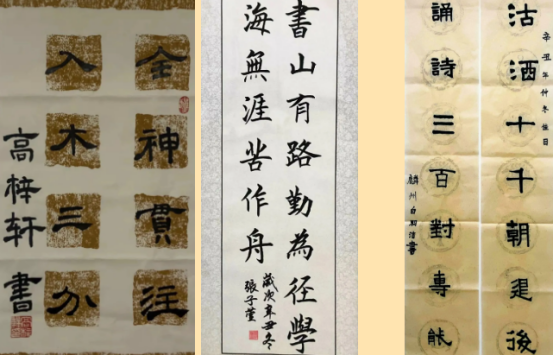 全神貫注
入木三分
高梓轩書
書山有路勤為径學
海無涯苦作舟
歲次辛丑冬
張子
辛丑年仲冬佳日
沽酒十千朝退後
誦詩三百對專能
麟州白書